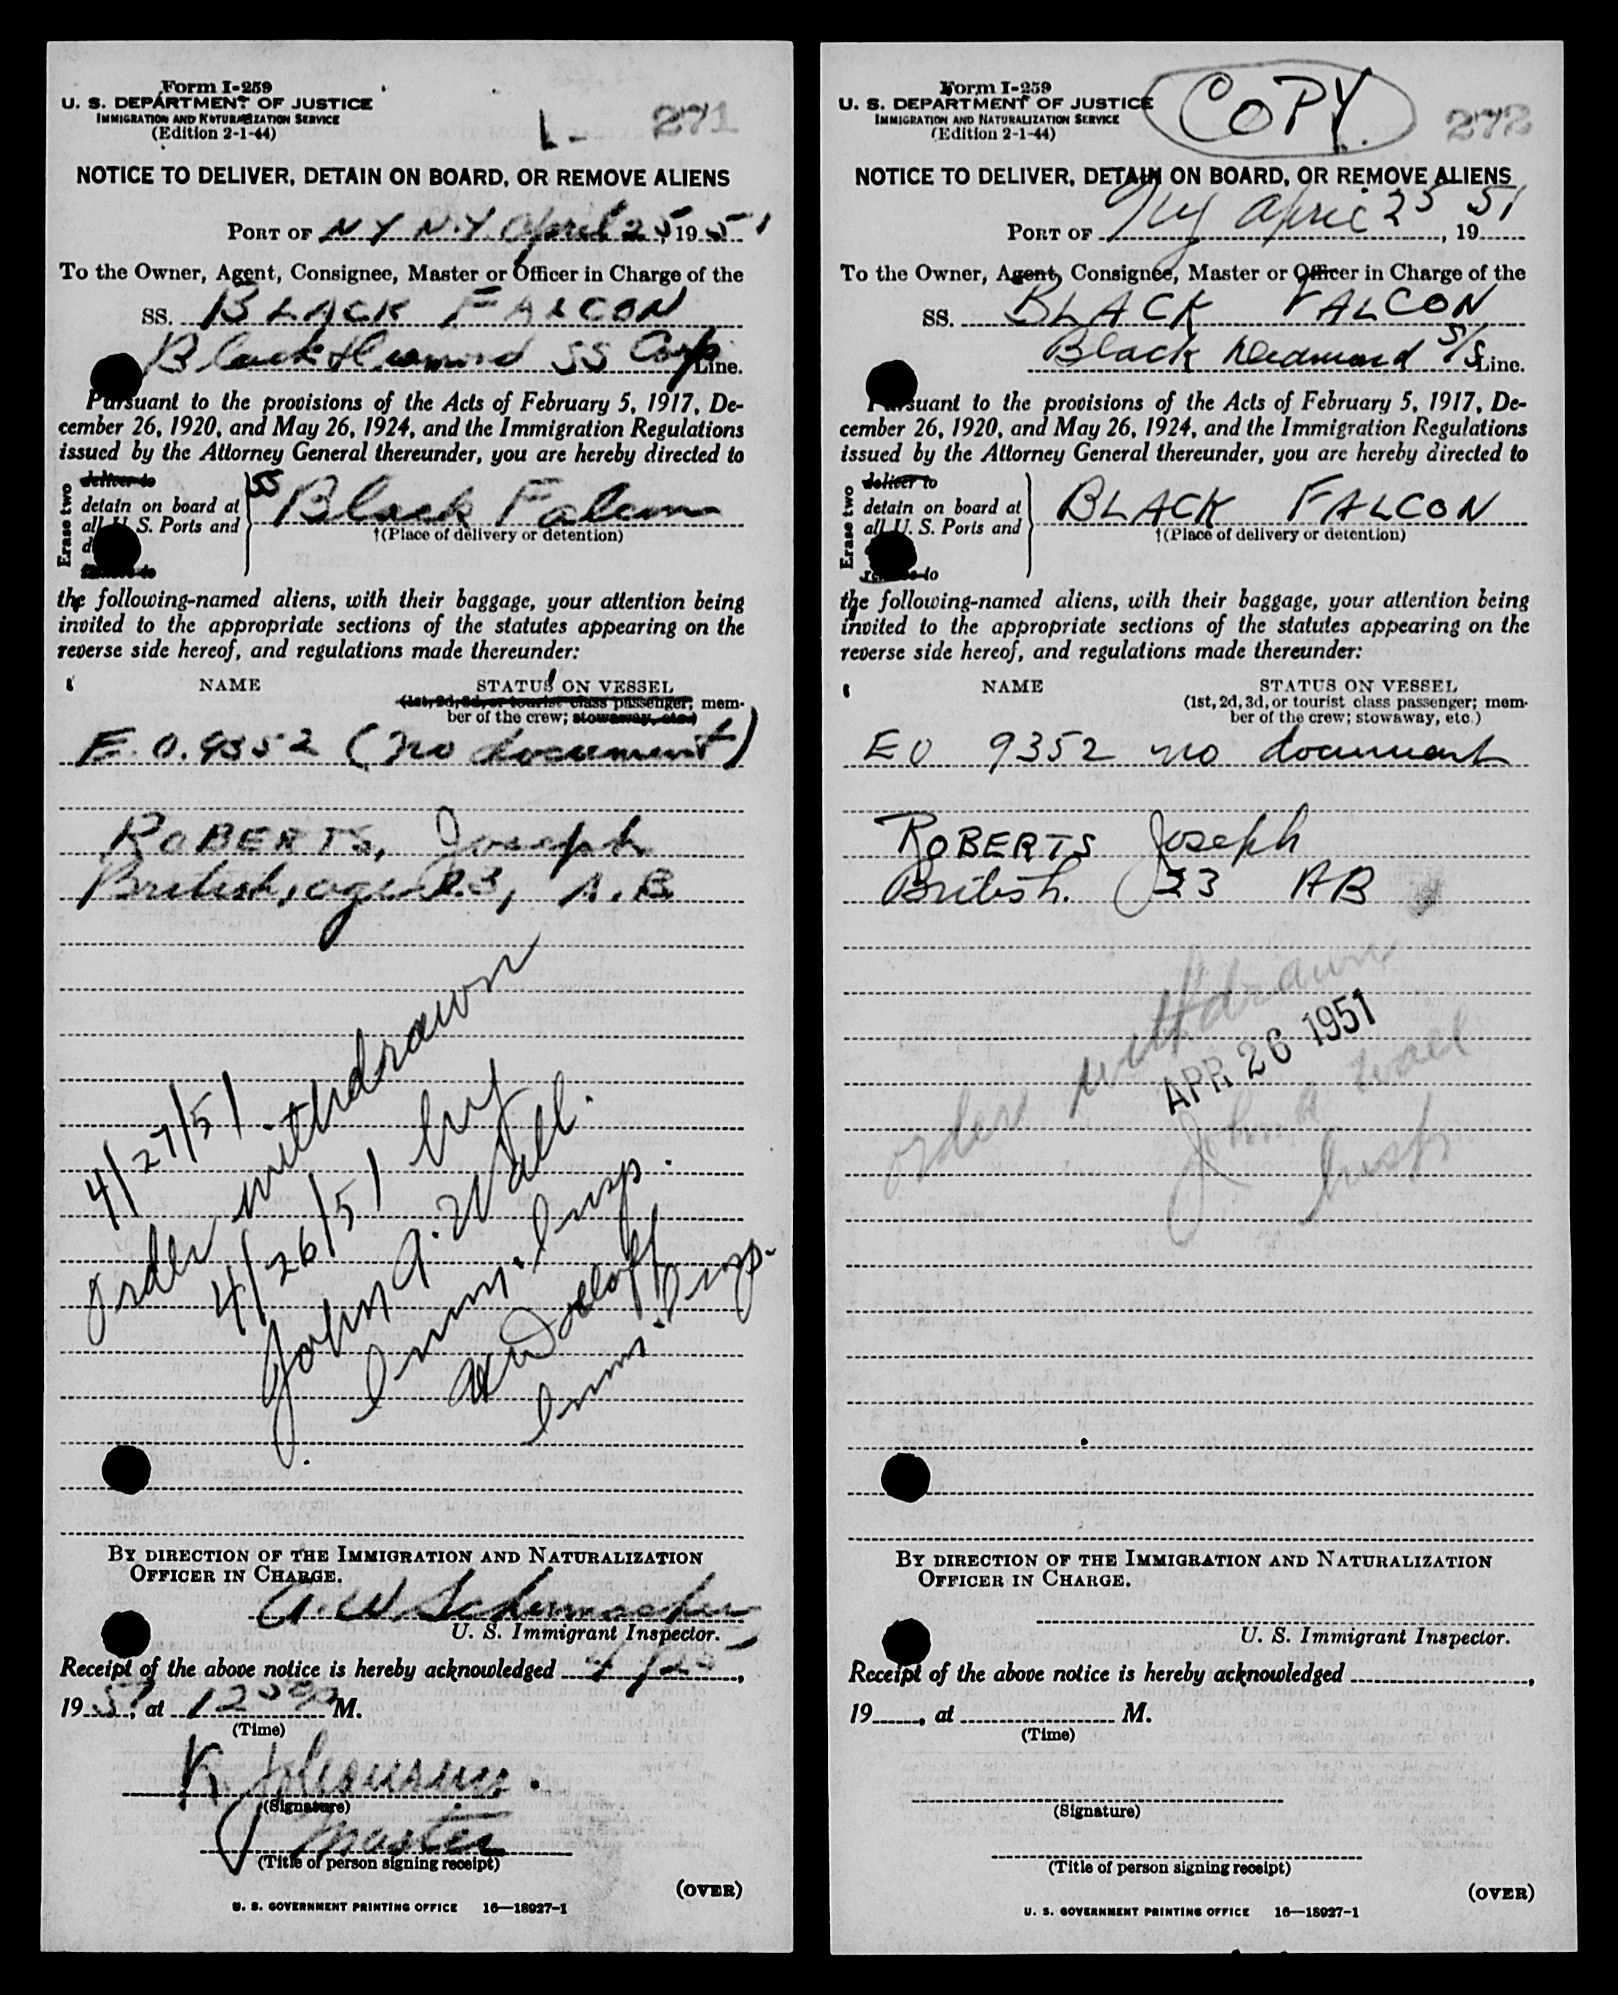 Form I-259
U. S. DEPARTMENT OF JUSTICE
IMMIGRATION AND NATURALIZATION SERVICE
(Edition 2-1-44)
271
NOTICE TO DELIVER, DETAIN ON BOARD, OR REMOVE ALIENS
PORT OF NY N.Y. April 25, 1951
To the Owner, Agent, Consignee, Master or Officer in Charge of the
SS. BLACK FALCON
Black Diamond SS Corp Line.
Pursuant to the provisions of the Acts of February 5, 1917, De-
cember 26, 1920, and May 26, 1924, and the Immigration Regulations
issued by the Attorney General thereunder, you are hereby directed to
Erase two
deliver to
detain on board at
all U. S. Ports and
remove to
SS Black Falcon
†(Place of delivery or detention)
the following-named aliens, with their baggage, your attention being
invited to the appropriate sections of the statutes appearing on the
reverse side hereof, and regulations made thereunder:
NAME STATUS ON VESSEL
(1st, 2d, 3d, or tourist class passenger; mem-
ber of the crew; stowaway, etc.)
E.O. 9352 (no document)
ROBERTS, Joseph
British, age 23, A.B.
4/27/51
Order withdrawn
4/26/51 by
John A. Wall.
Imm. Insp.
Imm. Insp.
BY DIRECTION OF THE IMMIGRATION AND NATURALIZATION
OFFICER IN CHARGE.
A. W. Schumacher
U. S. Immigrant Inspector.
Receipt of the above notice is hereby acknowledged 4/25,
1951, at 12 M.
(Time)
K Johansen.
(Signature)
Master
(Title of person signing receipt)
(OVER)
U. S. GOVERNMENT PRINTING OFFICE 16—18927-1
Form I-259
U. S. DEPARTMENT OF JUSTICE
IMMIGRATION AND NATURALIZATION SERVICE
(Edition 2-1-44)
COPY
272
NOTICE TO DELIVER, DETAIN ON BOARD, OR REMOVE ALIENS
PORT OF NY April 25, 1951
To the Owner, Agent, Consignee, Master or Officer in Charge of the
SS. BLACK FALCON
Black Diamond S/S Line.
Pursuant to the provisions of the Acts of February 5, 1917, De-
cember 26, 1920, and May 26, 1924, and the Immigration Regulations
issued by the Attorney General thereunder, you are hereby directed to
Erase two
deliver to
detain on board at
all U. S. Ports and
remove to
BLACK FALCON
†(Place of delivery or detention)
the following-named aliens, with their baggage, your attention being
invited to the appropriate sections of the statutes appearing on the
reverse side hereof, and regulations made thereunder:
NAME STATUS ON VESSEL
(1st, 2d, 3d, or tourist class passenger; mem-
ber of the crew; stowaway, etc.)
EO 9352 no document
ROBERTS Joseph
British. 23 AB
order withdrawn
APR 26 1951
John A Wall
Insp
BY DIRECTION OF THE IMMIGRATION AND NATURALIZATION
OFFICER IN CHARGE.
U. S. Immigrant Inspector.
Receipt of the above notice is hereby acknowledged
19, at M.
(Time)
(Signature)
(Title of person signing receipt)
(OVER)
U. S. GOVERNMENT PRINTING OFFICE 16—18927-1